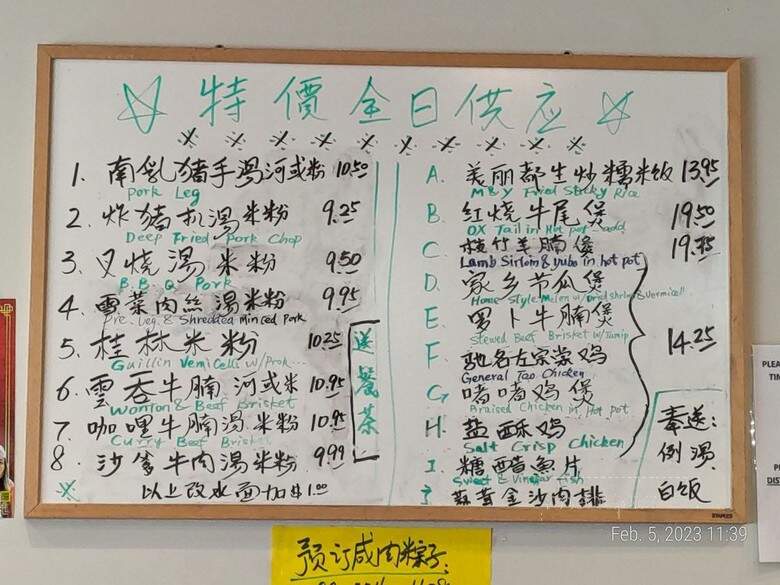 特價全日供应
1. 南乳猪手湯河或粉 10.50
Pork Leg
2. 炸猪扒湯米粉 9.25
Deep Fried Pork Chop
3. 叉烧湯米粉 9.50
B.B.Q. Pork
4. 雪菜肉絲湯米粉 9.95
Pre. Veg. & Shredded Minced Pork
5. 桂林米粉 10.25
Guillin Vemicelli w/ Prok...
6. 雲吞牛腩河或米 10.95
Wonton & Beef Brisket
7. 咖哩牛腩湯米粉 10.95
Curry Beef Brisket
8. 沙爹牛肉湯米粉 9.99
以上改水面加$1.00
送餐茶
A. 美丽都生炒糯米饭 13.95
M&Y Fried Sticky Rice
B. 红烧牛尾煲 19.50
OX Tail in Hot pot add
C. 枝竹羊腩煲
Lamb Sirloin & yubo in hot pot
D. 家乡节瓜煲
Home Style Melon w/ Dried shrimp & Vermicell
E. 罗卜牛腩煲
Stewed Beef Brisket w/ Turnip
F. 驰名左宗棠鸡
General Tao Chicken
G. 啫啫鸡煲
Braised Chicken in Hot pot
H. 盐酥鸡
Salt Crisp Chicken
I. 糖醋魚片
Sweet & Vinegar fish
J. 蒜茸金沙肉排
14.25
奉送:
例湯
白饭
STAPLES
Feb. 5, 2023 11:39
预订咸肉粽子:
PLEA
TIM